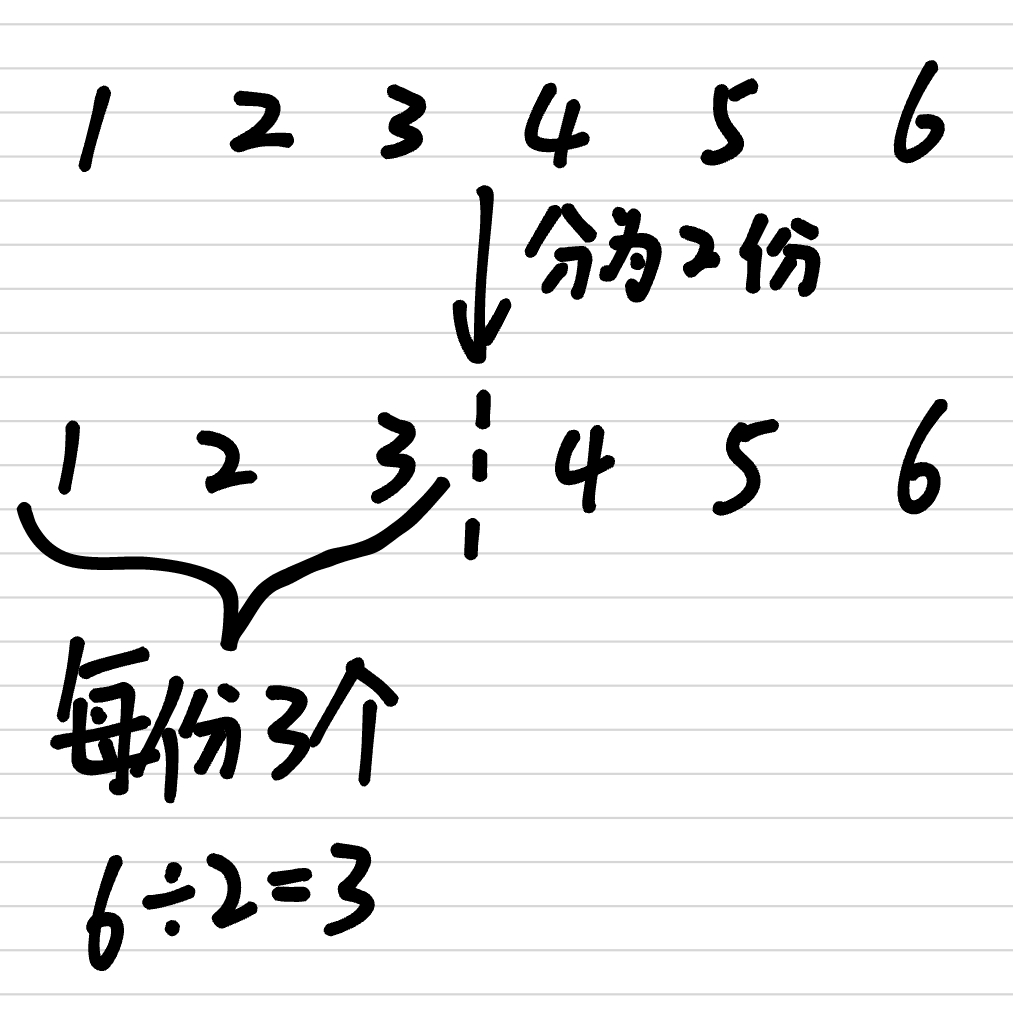 1 2 3 4 5 6
分为2份
1 2 3 4 5 6
每份3个
6÷2=3